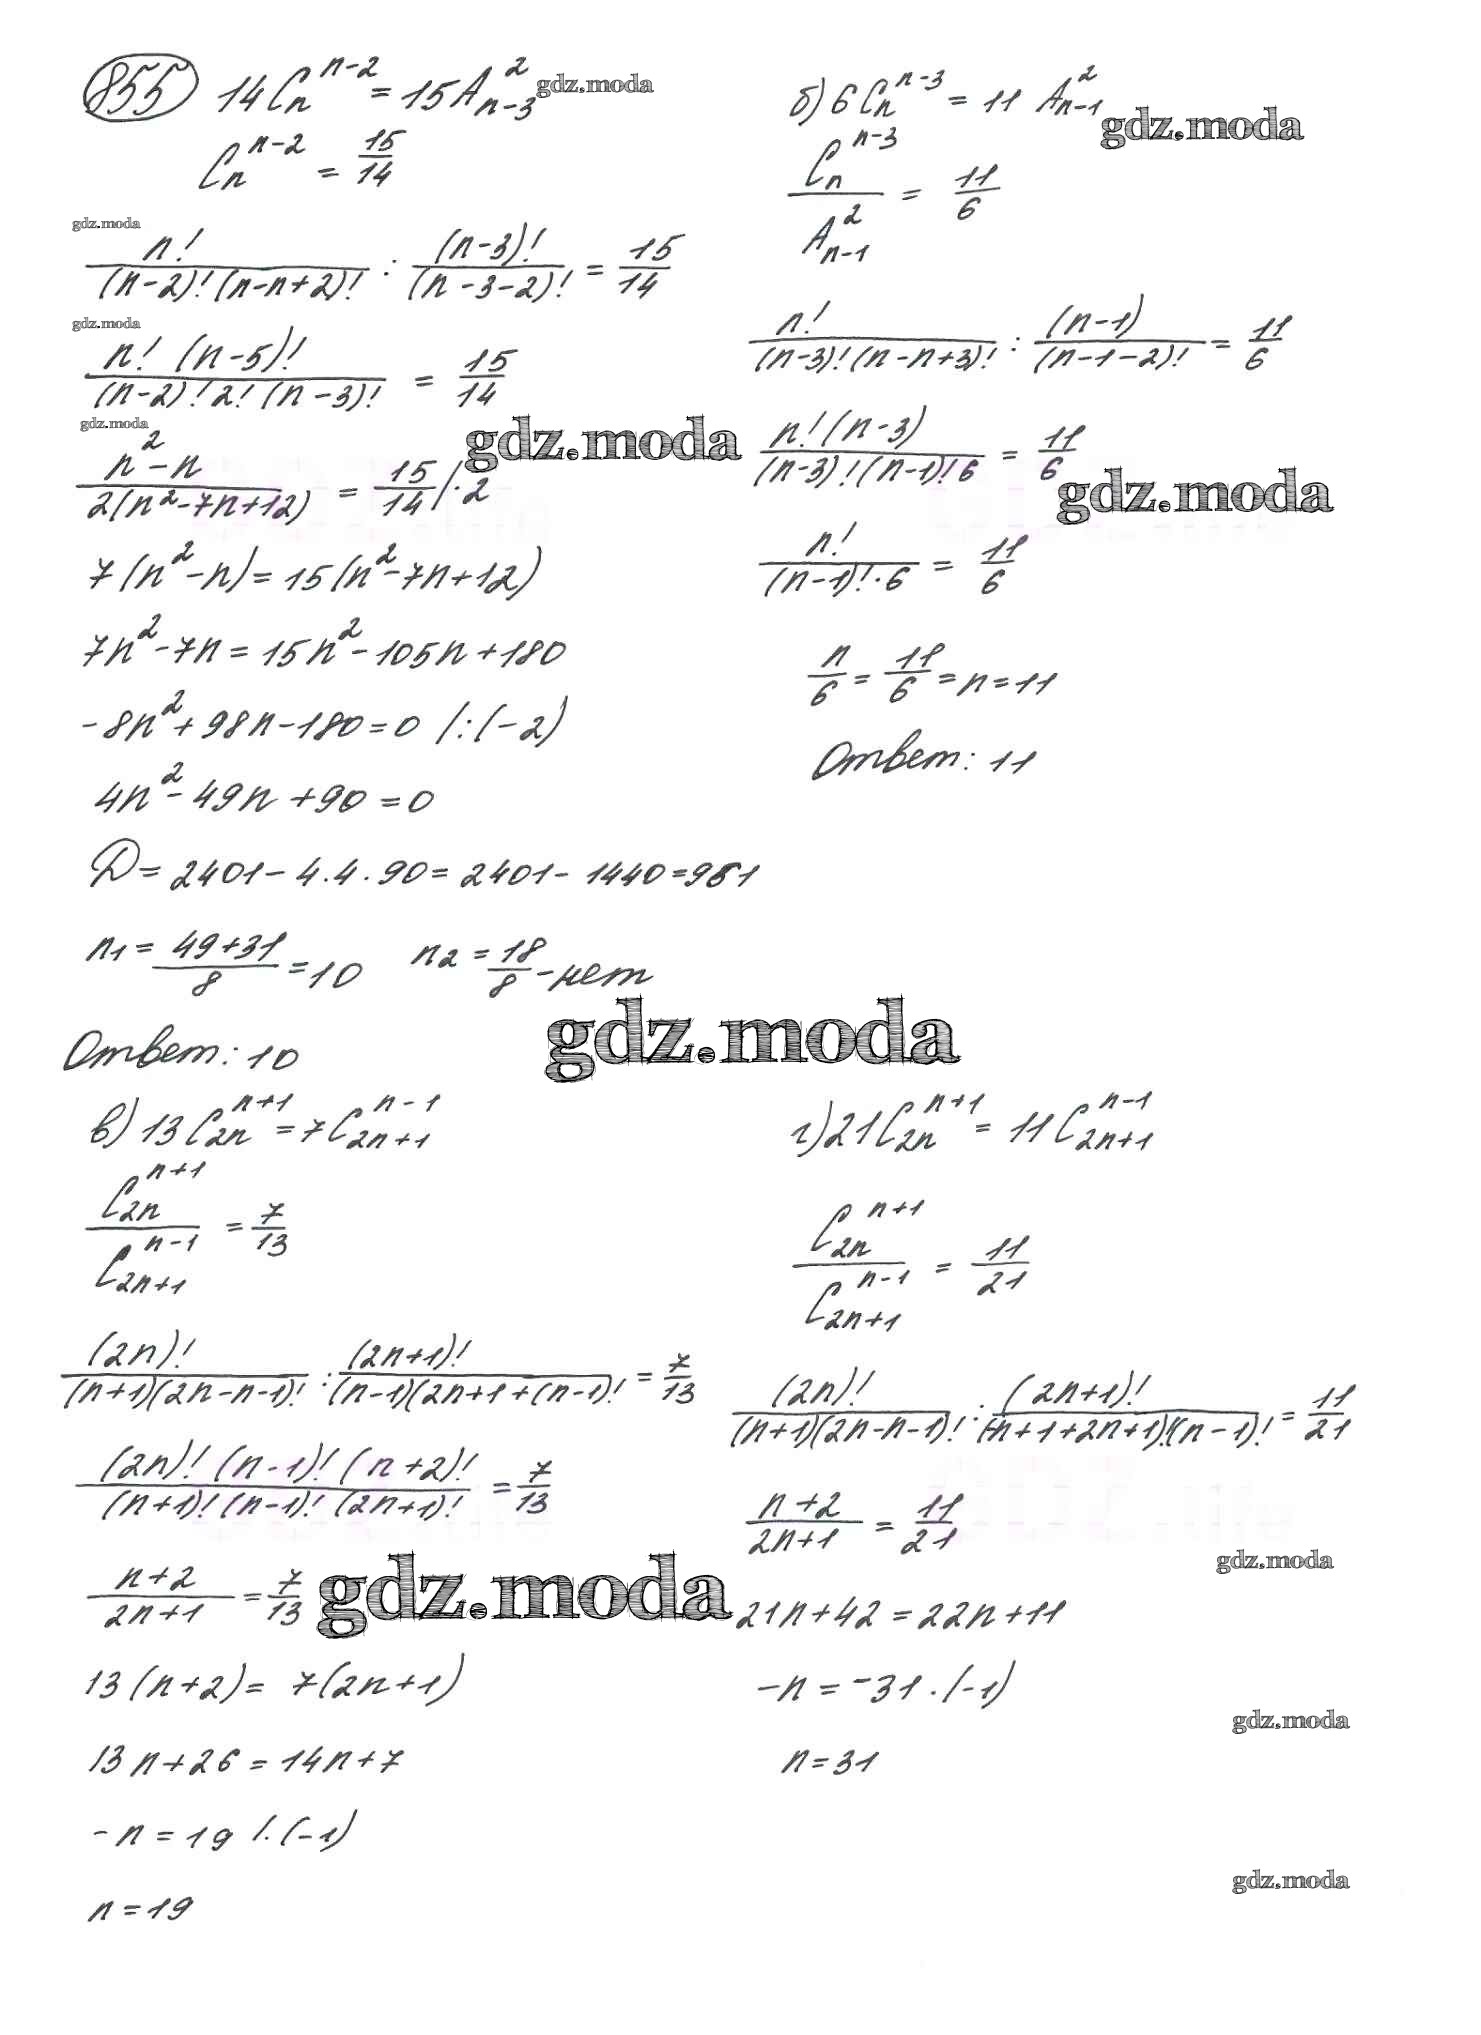 855 14C_n^{n-2} = 15A_{n-3}^2 gdz.moda
C_n^{n-2} = 15/14
gdz.moda
n!/((n-2)!(n-n+2)!) : (n-3)!/(n-3-2)! = 15/14
gdz.moda
n!(n-5)!/((n-2)!2!(n-3)!) = 15/14
gdz.moda
(n^2-n)/(2(n^2-7n+12)) = 15/14 /·2
gdz.moda
7(n^2-n) = 15(n^2-7n+12)
7n^2-7n = 15n^2-105n+180
-8n^2+98n-180=0 /:(-2)
4n^2-49n+90=0
D=2401-4·4·90=2401-1440=961
n1=(49+31)/8=10 n2=18/8-нет
gdz.moda
Ответ: 10
б) 6C_n^{n-3} = 11 A_{n-1}^2
gdz.moda
C_n^{n-3}/A_{n-1}^2 = 11/6
n!/((n-3)!(n-n+3)!) : (n-1)/(n-1-2)! = 11/6
n!(n-3)/((n-3)!(n-1)!6) = 11/6
gdz.moda
n!/((n-1)!·6) = 11/6
n/6 = 11/6 = n=11
Ответ: 11
в) 13C_{2n}^{n+1} = 7C_{2n+1}^{n-1}
C_{2n}^{n+1}/C_{2n+1}^{n-1} = 7/13
(2n)!/((n+1)(2n-n-1)!) : (2n+1)!/((n-1)(2n+1+(n-1)!) = 7/13
(2n)!(n-1)!(n+2)!/((n+1)!(n-1)!(2n+1)!) = 7/13
(n+2)/(2n+1) = 7/13
gdz.moda
13(n+2) = 7(2n+1)
13n+26=14n+7
-n=19 /·(-1)
n=19
г) 21C_{2n}^{n+1} = 11C_{2n+1}^{n-1}
C_{2n}^{n+1}/C_{2n+1}^{n-1} = 11/21
(2n)!/((n+1)(2n-n-1)!) : (2n+1)!/((-n+1+2n+1)!(n-1)!) = 11/21
(n+2)/(2n+1) = 11/21
gdz.moda
21n+42=22n+11
-n=-31·(-1)
gdz.moda
n=31
gdz.moda